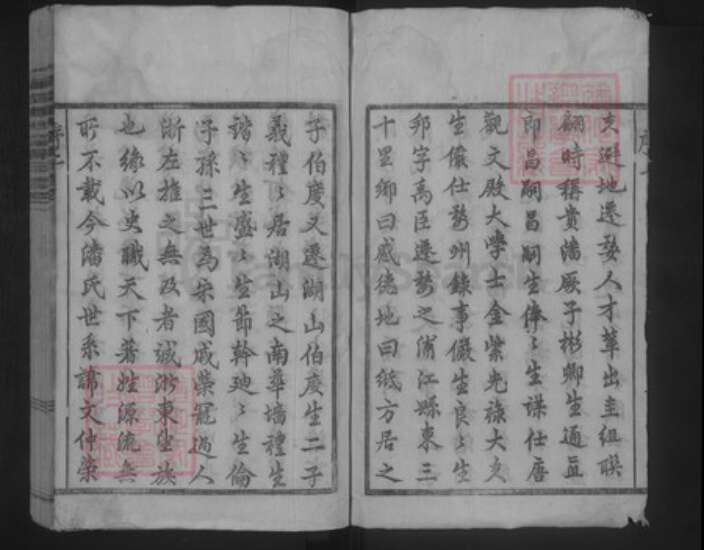 夫避地遷婺人才華出圭組聯
翩時稱貴潘厥子彬卿生通直
郎昌嗣昌嗣生倳〻生謀仕唐
觀文殿大學士金紫光祿大夫
生儼仕婺州錄事儼生良〻生
邦字禹臣遷婺之浦江縣東三
十里鄉曰感德地曰紙方居之
子伯度又遷湖山伯度生二子
義禮〻居湖山之南華墻禮生
諧〻生盛〻生節幹廸〻生倫
子孫三世為宋國戚榮冠過人
浙左推之無及者誠浙東望族
也緣以史職天下著姓源流無
所不載今潘氏世系譜文仲榮
序二